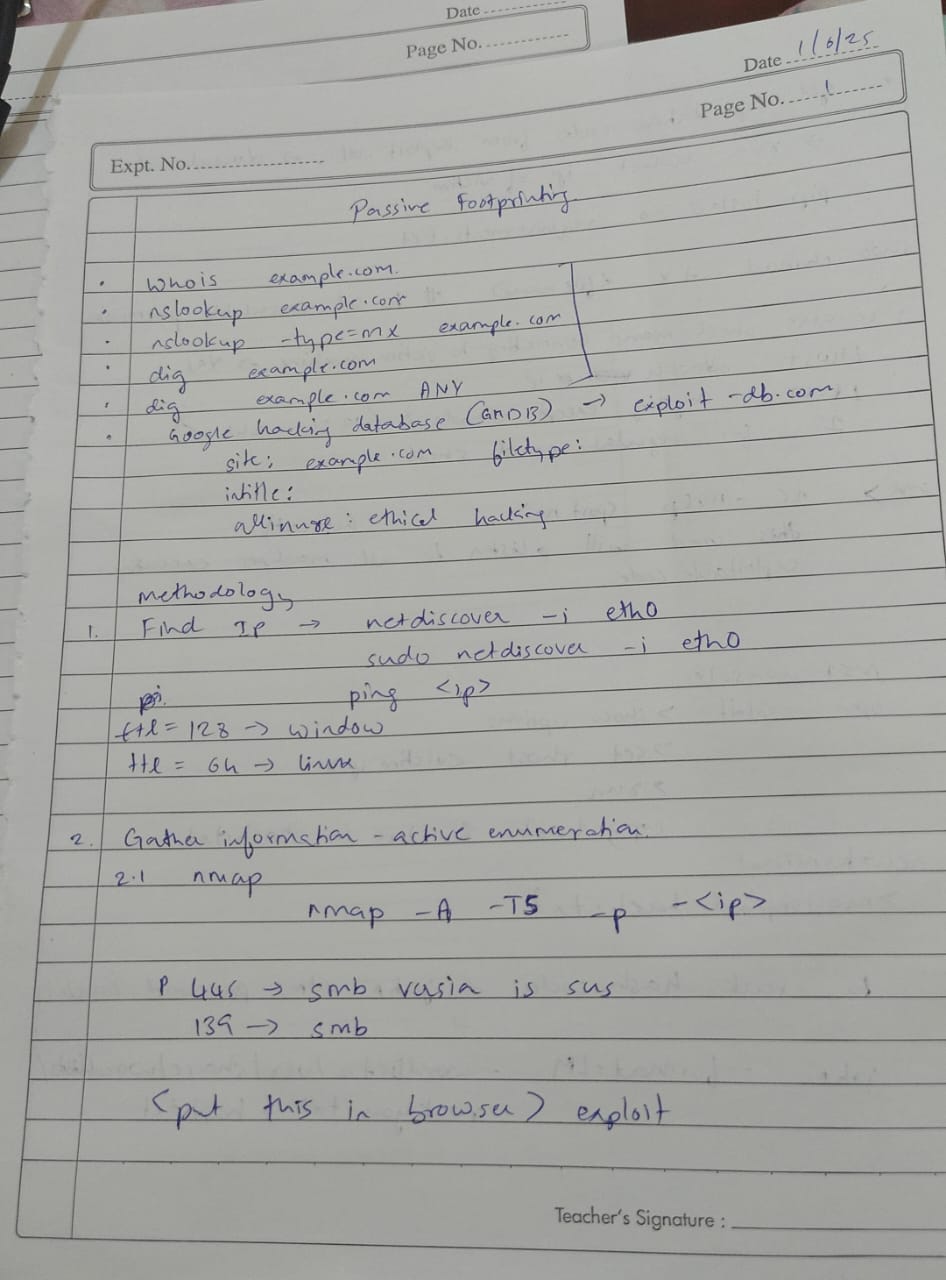 Date
Page No.
Date 1/6/25
Page No. 1
Expt. No.
Passive Footprinting
• whois example.com.
• nslookup example.com
• nslookup -type=mx example.com
• dig example.com
• dig example.com ANY
• Google hacking database (GHDB) → exploit-db.com
site: example.com filetype:
intitle:
allinurl: ethical hacking
methodology
1. Find IP → netdiscover -i eth0
sudo netdiscover -i eth0
ping <ip>
ttl = 128 → window
ttl = 64 → linux
2. Gather information - active enumeration.
2.1 nmap
nmap -A -T5 -p - <ip>
P 445 → smb. is sus
139 → smb
(put this in browser) exploit
Teacher's Signature :